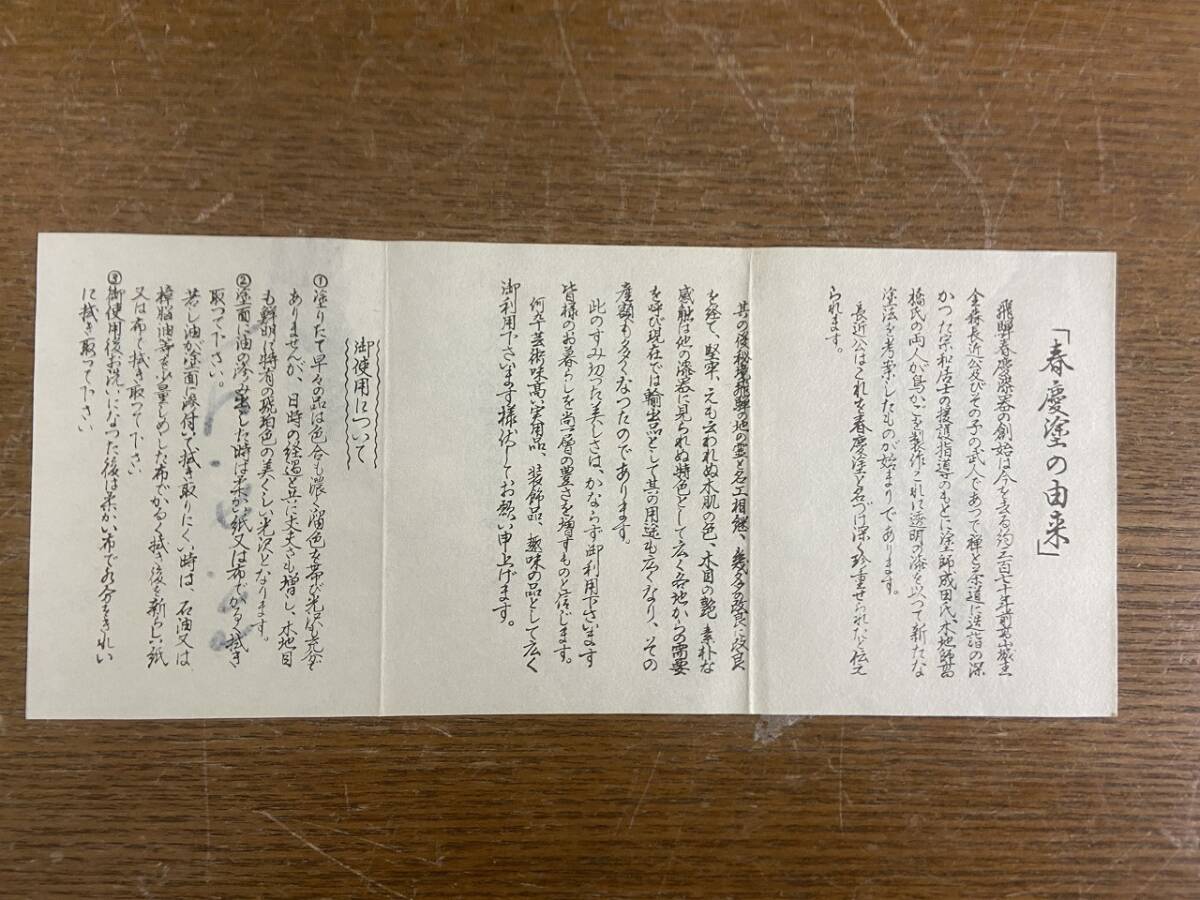 「春慶塗の由来」
飛騨春慶漆器の創始は今を去る約三百七十年前高山城主
金森長近公及びその子の弐人であつて禅と茶道に造詣の深
かつた宗和居士の援護指導のもとに塗師成田氏、木地師高
橋氏の両人が鳥かごを製作これに透明の漆を以つて新たな
塗法を考案したものが始まりであります。
長近公はこれを春慶塗と名づけ深く珍重せられたと伝え
られます。
其の後秘境飛騨の地の霊と名工相継、幾多の改良に改良
を経て、堅牢、えも云われぬ木肌の色、木目の艶、素朴な
感触は他の漆器に見られぬ特色として広く各地からの需要
を呼び現在では輸出品として其の用途も広くなり、その
産額も多くなつたのであります。
此のすみ切つた美しさは、かならず御利用下さいます
皆様のお暮らしを尚一層の豊さを増すものと信じます。
何卒芸術味高い実用品、装飾品、趣味の品として広く
御利用下さいます様伏してお願い申上げます。
御使用について
①塗りたて早々の品は色合も濃く溜色を帯び光沢が充分
ありませんが、日時の経過と共に丈夫さも増し、木地目
も鮮明に特有の琥珀色の美くしい光沢となります。
②塗面に油の滲み出した時は柔かい紙又は布でかるく拭き
取つて下さい。
若し油が塗面に滲付いて拭き取りにくい時は、石油又は、
樟脳油等を少量しめした布でかるく拭き後を新らしい紙
又は布で拭き取つて下さい
③御使用後お洗いになつた後は柔かい布で水分をきれい
に拭き取つて下さい